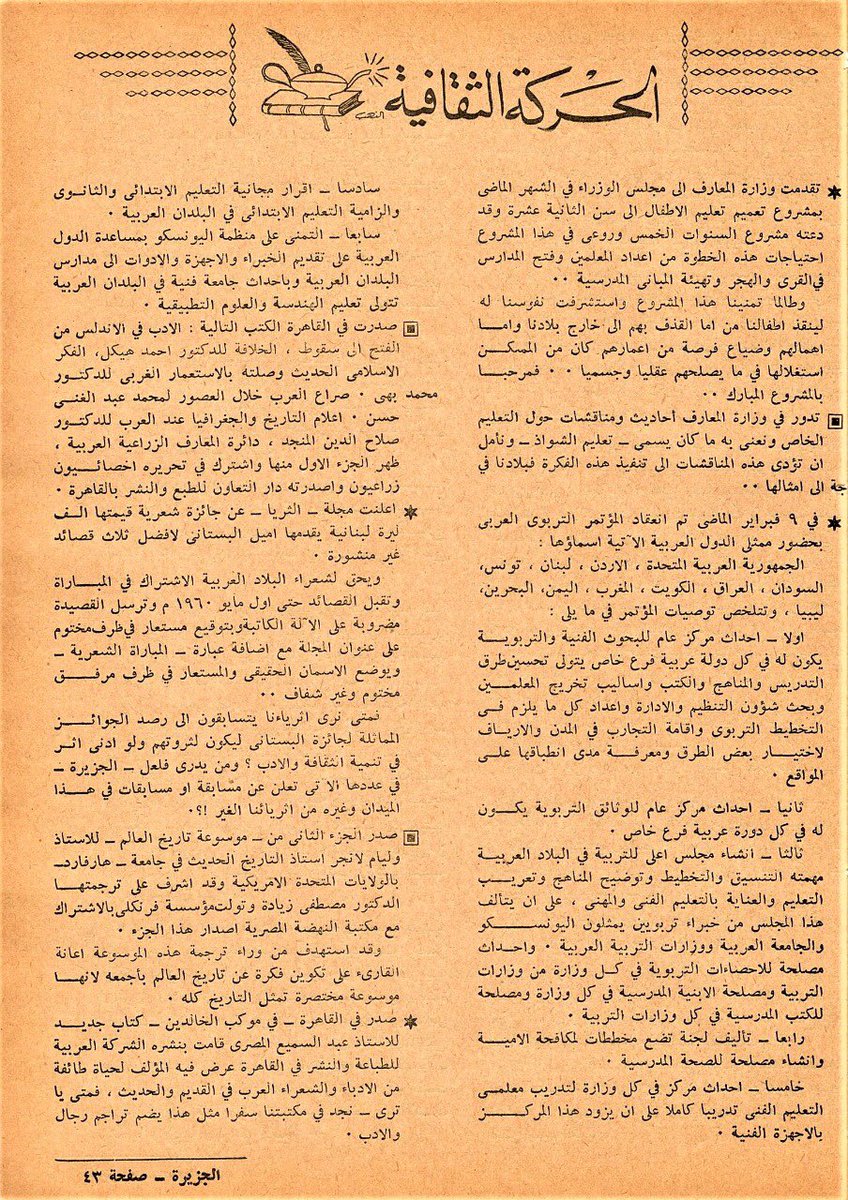 الحركة الثقافية
* تقدمت وزارة المعارف الى مجلس الوزراء في الشهر الماضى
بمشروع تعميم تعليم الاطفال الى سن الثانية عشرة وقد
دعته مشروع السنوات الخمس وروعى في هذا المشروع
احتياجات هذه الخطوة من اعداد المعلمين وفتح المدارس
في القرى والهجر وتهيئة المبانى المدرسية ٠٠
وطالما تمنينا هذا المشروع واستشرفت نفوسنا له
لينقذ اطفالنا من اما القذف بهم الى خارج بلادنا وامـا
اهمالهم وضياع فرصة من اعمارهم كان من الممسكـن
استغلالها في ما يصلحهم عقليا وجسميا ٠٠ فمرحبـا
بالمشروع المبارك ٠٠
تدور في وزارة المعارف أحاديث ومناقشات حول التعليم
الخاص ونعنى به ما كان يسمى ــ تعليم الشواذ ــ ونأمل
ان تؤدى هذه المناقشات الى تنفيذ هذه الفكرة فبلادنا في
جة الى امثالها ٠٠
* في ٩ فبراير الماضى تم انعقاد المؤتمر التربوى العربى
بحضور ممثلى الدول العربية الآتية اسماؤها :
الجمهورية العربية المتحدة ، الاردن ، لبنان ، تونس،
السودان ، العراق ، الكويت ، المغرب ، اليمن، البحرين،
ليبيا ، وتتلخص توصيات المؤتمر في ما يلى :
اولا ــ احداث مركز عام للبحوث الفنية والتربويـة
يكون له في كل دولة عربية فرع خاص يتولى تحسين طرق
التدريس والمناهج والكتب واساليب تخريج المعلمـين
وبحث شؤون التنظيم والادارة واعداد كل ما يلزم فـى
التخطيط التربوى واقامة التجارب في المدن والاريـاف
لاختيـار بعض الطرق ومعرفـة مدى انطباقها علـى
المواقع ٠
ثانيا ــ احداث مركز عام للوثائق التربوية يكـون
له في كل دورة عربية فرع خاص ٠
ثالثا ــ انشاء مجلس اعلى للتربية في البلاد العربيـة
مهمته التنسيق والتخطيط وتوضيح المناهج وتعريـب
التعليم والعناية بالتعليم الفنى والمهنى ، على ان يتألف
هذا المجلس من خبراء تربويين يمثلون اليونسـكو
والجامعة العربية ووزارات التربية العربية ٠ واحـداث
مصلحة للاحصاءات التربوية في كـل وزارة من وزارات
التربية ومصلحة الابنية المدرسية في كل وزارة ومصلحة
للكتب المدرسية في كل وزارات التربية ٠
رابعا ــ تأليف لجنة تضع مخططات لمكافحة الاميـة
وانشاء مصلحة للصحة المدرسية ٠
خامسا ــ احداث مركز في كل وزارة لتدريب معلمـى
التعليم الفنى تدريبا كاملا على ان يزود هذا المركـز
بالاجهزة الفنية ٠
سادسا ــ اقرار مجانية التعليم الابتدائى والثانـوى
والزامية التعليم الابتدائى في البلدان العربية ٠
سابعا ــ التمنى على منظمة اليونسكو بمساعدة الدول
العربية على تقديم الخبراء والاجهزة والادوات الى مدارس
البلدان العربية وباحداث جامعة فنية في البلدان العربية
تتولى تعليم الهندسة والعلوم التطبيقية ٠
صدرت في القاهرة الكتب التالية : الادب في الاندلس من
الفتح الى سقوط ، الخلافة للدكتور احمد هيكل، الفكر
الاسلامى الحديث وصلته بالاستعمار الغربى للدكتـور
محمد بهى ٠ صراع العرب خلال العصور لمحمد عبد الغنـى
حسن ٠ اعلام التاريخ والجغرافيا عند العرب للدكتور
صلاح الدين المنجد ، دائرة المعارف الزراعية العربية ،
ظهر الجزء الاول منها واشترك في تحريره اخصائـيون
زراعيون واصدرته دار التعاون للطبع والنشر بالقاهرة ٠
* اعلنت مجلة ــ الثريا ــ عن جائزة شعرية قيمتها الـف
ليرة لبنانية يقدمها اميل البستانى لافضل ثلاث قصائد
غير منشورة ٠
ويحق لشعراء البلاد العربية الاشتراك في المبـاراة
وتقبل القصائد حتى اول مايو ١٩٦٠ م وترسل القصيدة
مضروبة على الآلة الكاتبة وبتوقيع مستعار في ظرف مختوم
على عنوان المجلة مع اضافة عبارة ــ المباراة الشعرية ــ
ويوضع الاسمان الحقيقى والمستعار في ظرف مرفـق
مختوم وغير شفاف ٠٠
فمتى نرى اثرياءنا يتسابقون الى رصد الجوائـز
المماثلة لجائزة البستانى ليكون لثروتهم ولو ادنى اثـر
في تنمية الثقافة والادب ؟ ومن يدرى فلعل ــ الجزيرة ــ
في عددها الآتى تعلن عن مسابقة او مسابقات في هـذا
الميدان وغيره من اثريائنا الغير !؟٠
صدر الجزء الثانى من ــ موسوعة تاريخ العالم ــ للاستاذ
وليام لانجر استاذ التاريخ الحديث في جامعة ــ هارفارد ــ
بالولايات المتحدة الامريكية وقد اشرف على ترجمتهـا
الدكتور مصطفى زيادة وتولت مؤسسة فرنكلى بالاشتراك
مع مكتبة النهضة المصرية اصدار هذا الجزء ٠
وقد استهدف من وراء ترجمة هذه الموسوعة اعانة
القارىء على تكوين فكرة عن تاريخ العالم بأجمعه لانهـا
موسوعة مختصرة تمثل التاريخ كله ٠
* صدر في القاهرة ــ في موكب الخالدين ــ كتاب جديـد
للاستاذ عبد السميع المصرى قامت بنشره الشركة العربية
للطباعة والنشر في القاهرة عرض فيه المؤلف لحياة طائفة
من الادباء والشعراء العرب في القديم والحديث ، فمتى يا
ترى ــ نجد في مكتبتنا سفرا مثل هذا يضم تراجم رجال
والادب ٠
الجزيرة ــ صفحة ٤٣